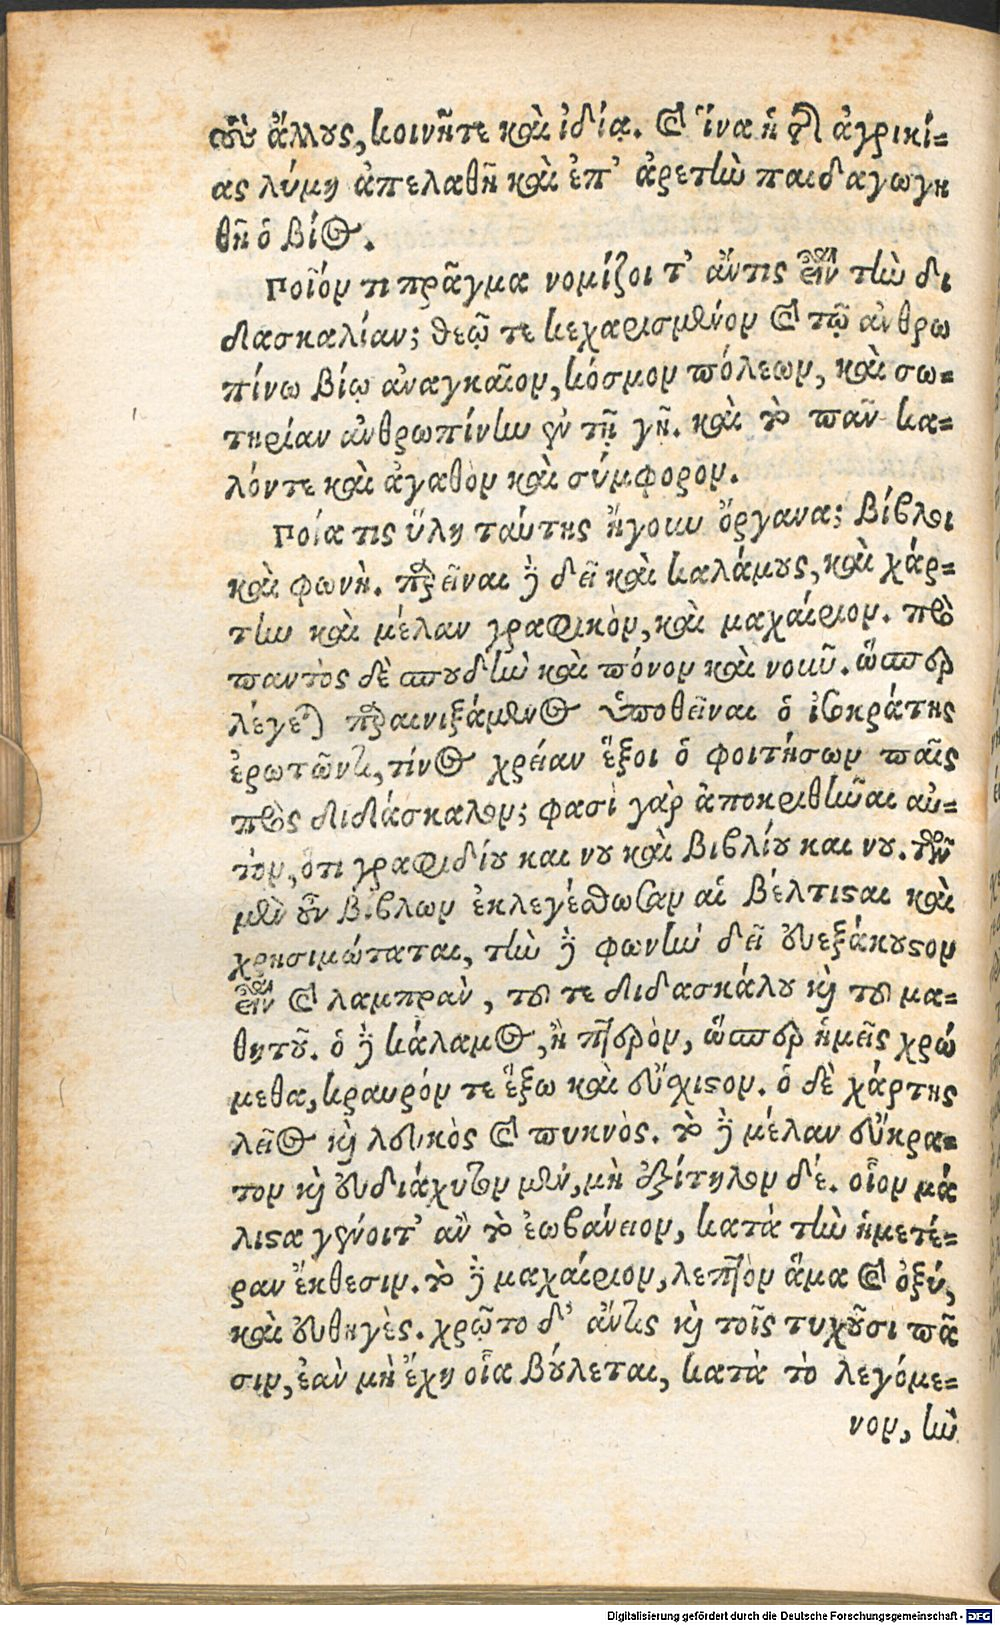 τοὺς ἄλλους, κοινῇ τε καὶ ἰδίᾳ. καὶ ἵνα ἡ τῆς ἀγρικί-
ας λύμη ἀπελαθῇ καὶ ἐπ' ἀρετὴν παιδαγωγη
θῇ ὁ βίος.
Ποῖόν τι πρᾶγμα νομίζοι τ' ἄν τις εἶναι τὴν δι
δασκαλίαν; θεῷ τε κεχαρισμένον καὶ τῷ ἀνθρω
πίνω βίῳ ἀναγκαῖον, κόσμον πόλεων, καὶ σω-
τηρίαν ἀνθρωπίνην ἐν τῇ γῇ. καὶ τὸ πᾶν κα-
λόν τε καὶ ἀγαθὸν καὶ σύμφορον.
Ποία τις ὕλη ταύτης ἤγουν ὄργανα; βίβλοι
καὶ φωνὴ. παρεῖναι δὲ δεῖ καὶ καλάμους, καὶ χάρ-
την καὶ μέλαν γραφικὸν, καὶ μαχαίριον. πρὸ
παντὸς δὲ σπουδὴν καὶ πόνον καὶ νοιῦ. ὥσπερ
λέγεται παραινιξάμενος ὑποθεῖναι ὁ ἰσοκράτης
ἐρωτῶντι, τίνος χρείαν ἕξοι ὁ φοιτήσων παῖς
πρὸς διδάσκαλον; φασὶ γὰρ ἀποκριθῆναι αὐ-
τὸν, ὅτι γραφιδίου και νου καὶ βιβλίου και νου. τῶν
μὲν οὖν βίβλων ἐκλεγέσθωσαν αἱ βέλτισται καὶ
χρησιμώταται, τὴν δὲ φωνὴν δεῖ εὐεξάκουστον
εἶναι καὶ λαμπρὰν, τοῦ τε διδασκάλου καὶ τοῦ μα-
θητοῦ. ὁ δὲ κάλαμος, ἢ πτερὸν, ὥσπερ ἡμεῖς χρώ
μεθα, κραυρόν τε ἔξω καὶ εὔχιστον. ὁ δὲ χάρτης
λεῖος καὶ λευκὸς καὶ πυκνὸς. τὸ δὲ μέλαν εὔκρα-
τον καὶ εὐδιάχυτον μὲν, μὴ ἐξίτηλον δέ. οἷον μά
λιστα γένοιτ' ἂν τὸ ἐωβάνειον, κατὰ τὴν ἡμετέ-
ραν ἔκθεσιν. τὸ δὲ μαχαίριον, λεπτὸν ἅμα καὶ ὀξύ,
καὶ εὐθηγὲς. χρῷτο δ' ἄν τις καὶ τοῖς τυχοῦσι πᾶ
σιν, ἐὰν μὴ ἔχῃ οἷα βούλεται, κατὰ τὸ λεγόμε-
νον, κὴν
Digitalisierung gefördert durch die Deutsche Forschungsgemeinschaft - DFG